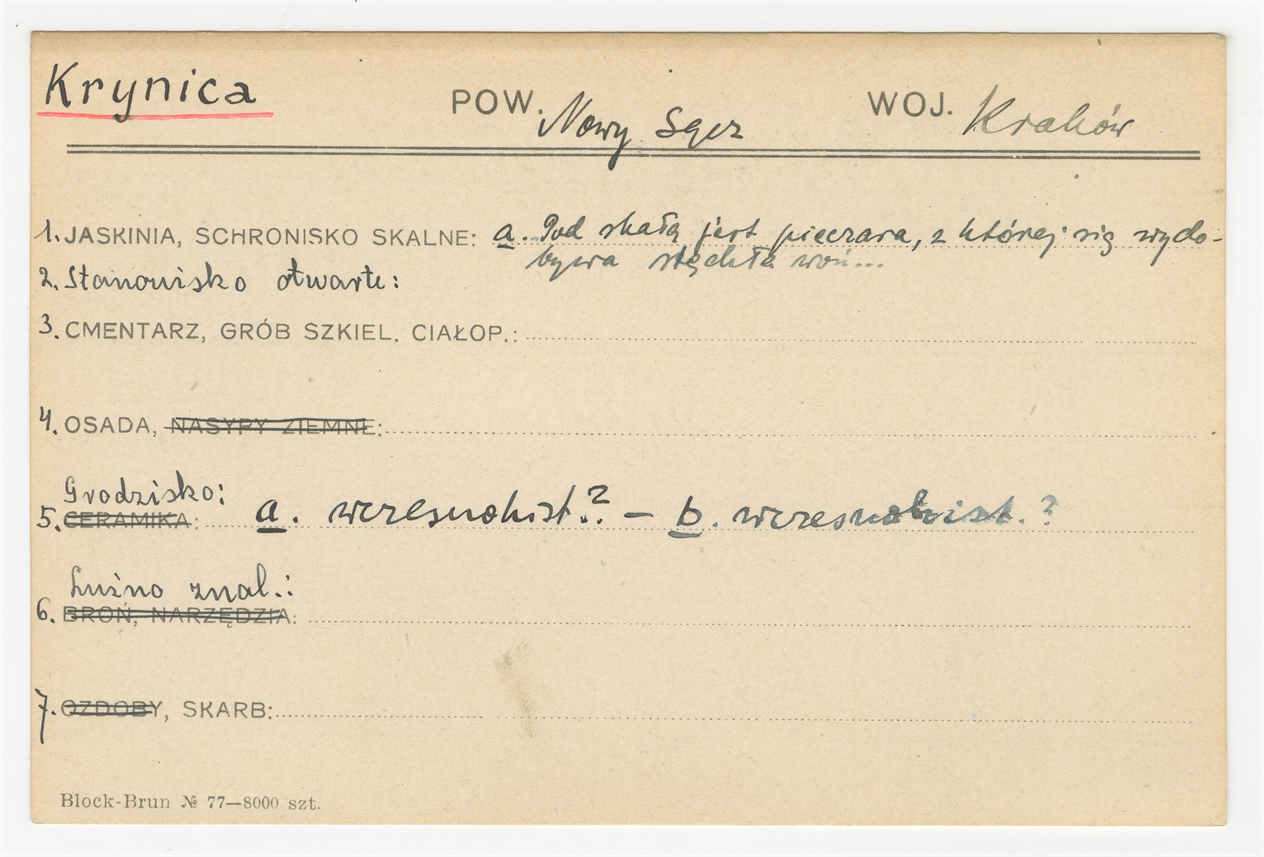 Krynica POW. Nowy Sącz WOJ. Kraków
1. JASKINIA, SCHRONISKO SKALNE: a. Pod skałą jest pieczara, z której się wydo-
bywa stęchła woń...
2. Stanowisko otwarte:
3. CMENTARZ, GRÓB SZKIEL. CIAŁOP.:
4. OSADA, NASYPY ZIEMNE:
Grodzisko:
5. CERAMIKA: a. wczesnohist.? – b. wczesnohist.?
Luźno znal.:
6. BROŃ, NARZĘDZIA:
7. OZDOBY, SKARB:
Block-Brun № 77—8000 szt.